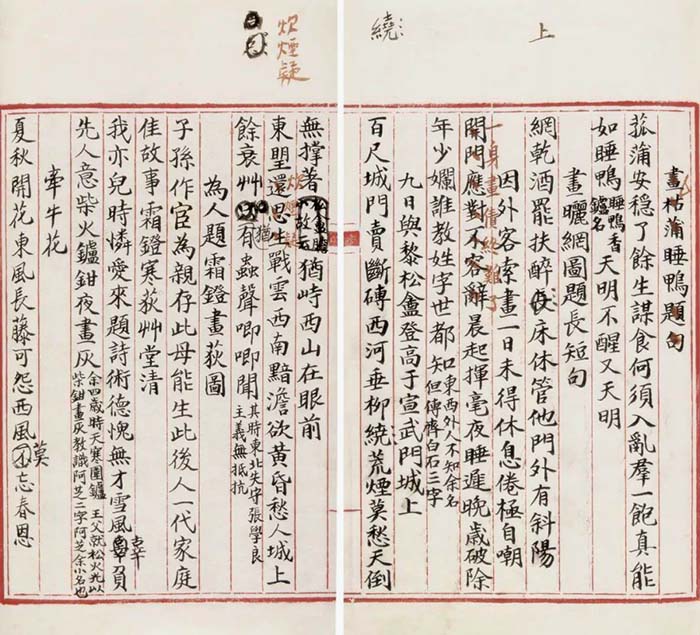 上
繞
畫菰蒲睡鴨題句
菰蒲安穩了餘生謀食何須入亂羣一飽真能
如睡鴨睡鴨香鑪名天明不醒又天明
畫曬網圖題長短句
網乾酒罷扶醉床休管他門外有斜陽
因外客索畫一日未得休息倦極自嘲
一身畫債終難了
開門應對不容辭晨起揮毫夜睡遲晚歲破除
年少嬾誰教姓字世都知東西外人不知余名但傳白石三字
九日與黎松盦登高于宣武門城上
百尺城門賣斷磚西河垂柳繞荒煙莫愁天倒
炊煙疑
無撐著猶峙西山在眼前
東望還思生戰雲西南黯澹欲黃昏愁人城上
餘衰艸猶有蟲聲唧唧聞其時東北失守張學良主義無抵抗
為人題霜鐙畫荻圖
子孫作宦為親存此母能生此後人一代家庭
佳故事霜鐙寒荻艸堂清
我亦兒時憐愛來題詩術德愧無才雪風辜負
先人意柴火鑪鉗夜畫灰余四歲時天寒圍鑪王父就松火光以柴鉗畫灰教識阿芝二字阿芝余小名也
牽牛花
夏秋開花東風長藤可怨西風莫忘春恩